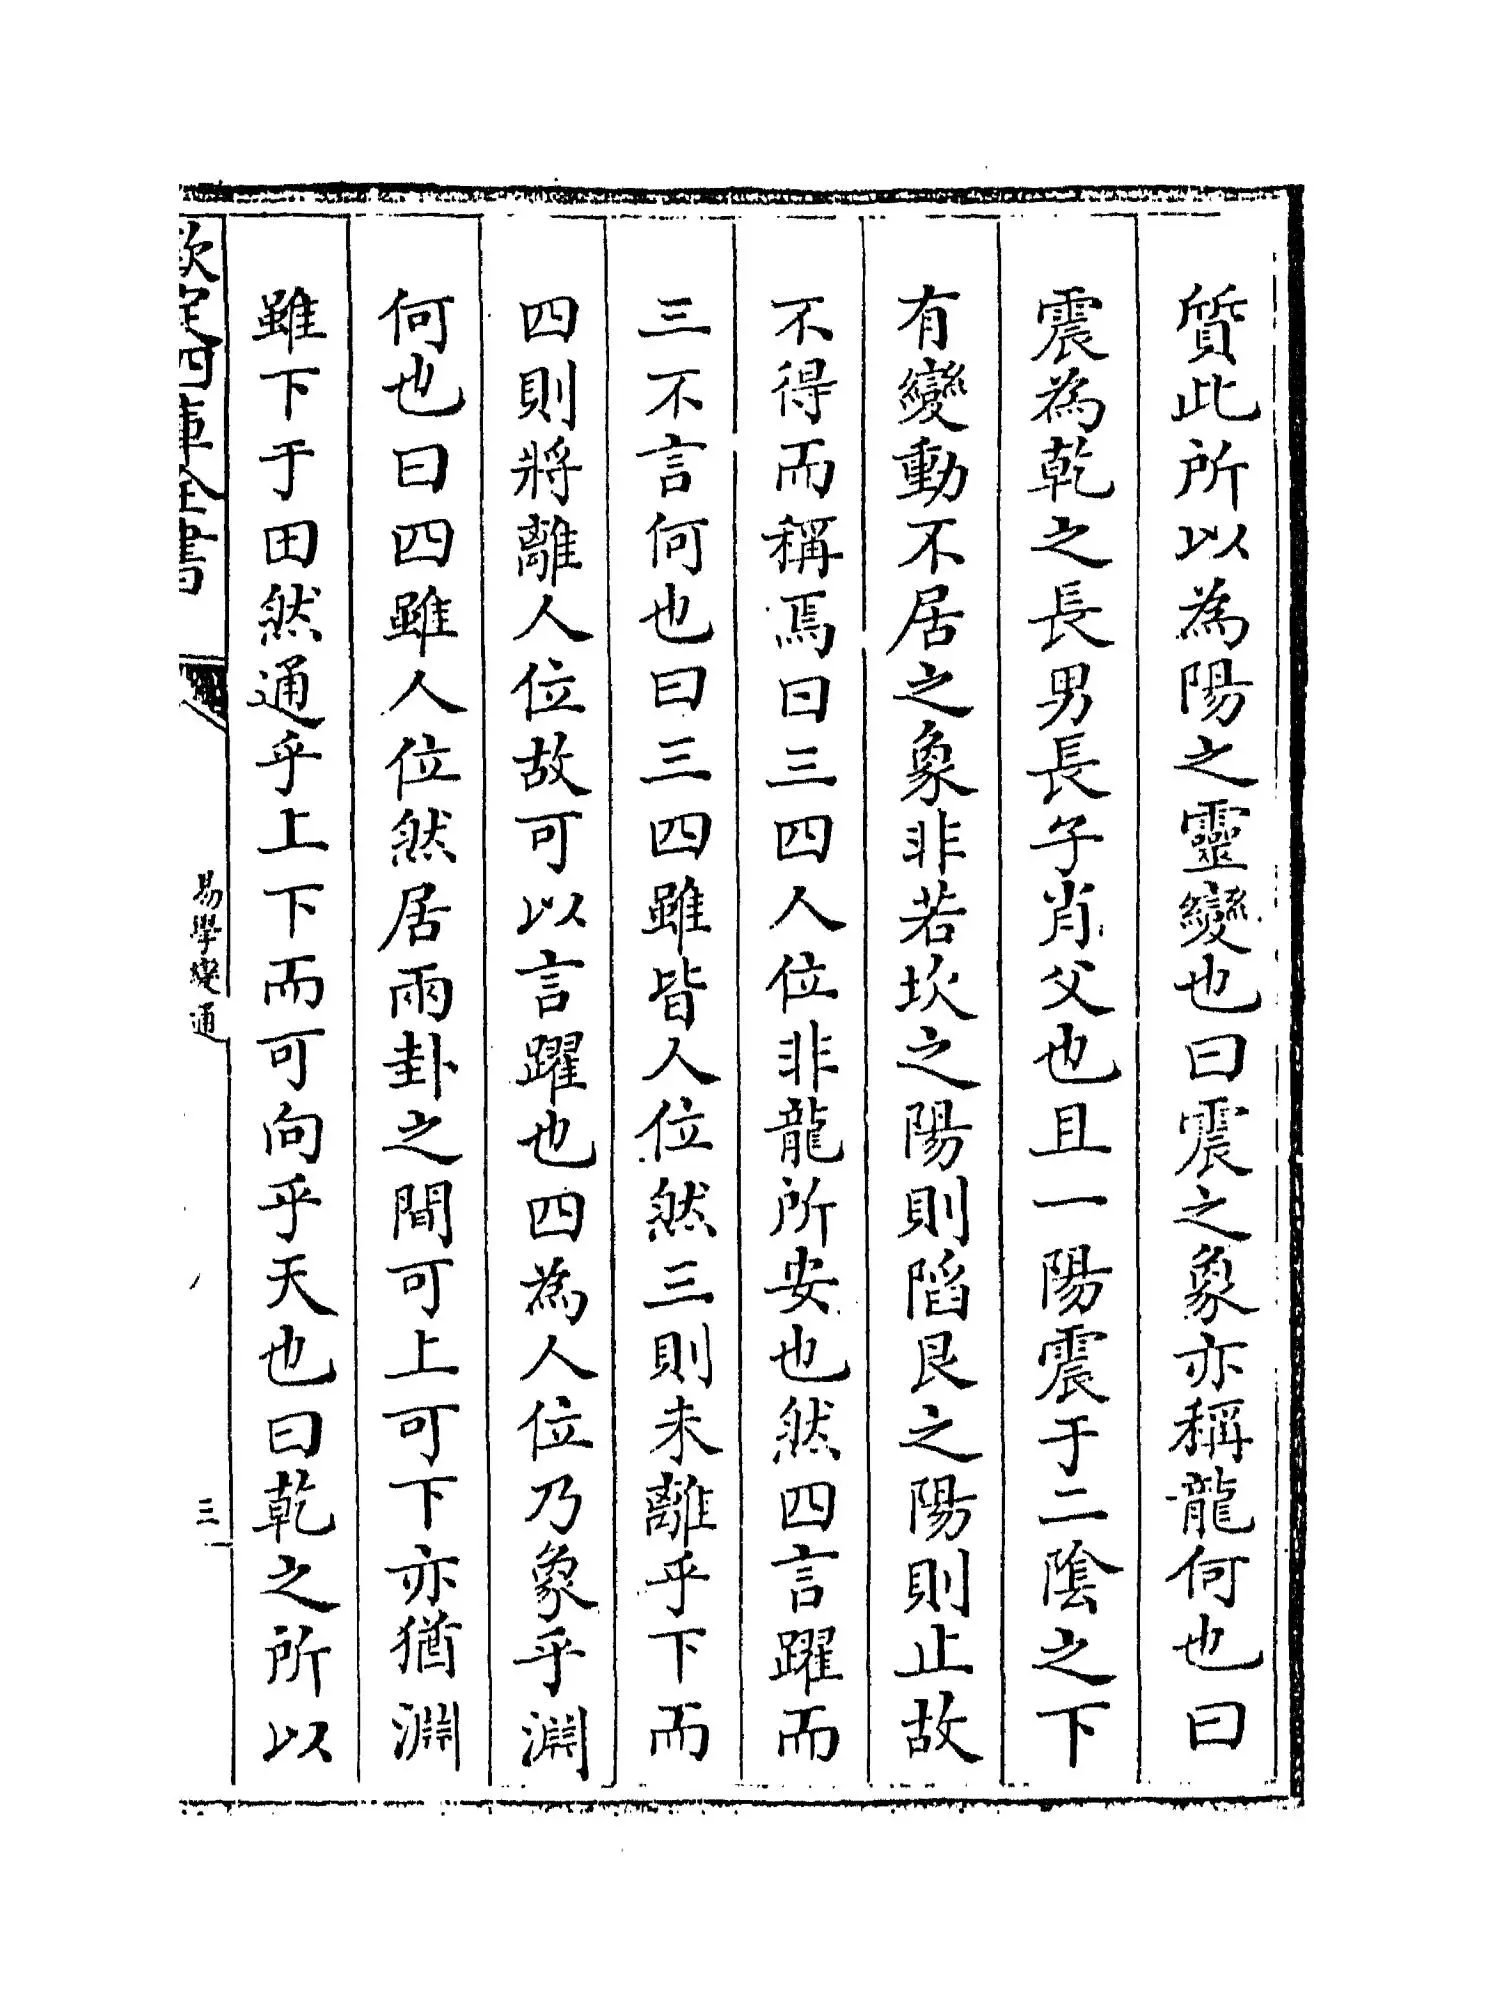 質此所以為陽之靈變也曰震之象亦稱龍何也曰
震為乾之長男長子肖父也且一陽震于二陰之下
有變動不居之象非若坎之陽則陷艮之陽則止故
不得而稱焉曰三四人位非龍所安也然四言躍而
三不言何也曰三四雖皆人位然三則未離乎下而
四則將離人位故可以言躍也四為人位乃象乎淵
何也曰四雖人位然居兩卦之間可上可下亦猶淵
雖下于田然通乎上下而可向乎天也曰乾之所以
欽定四庫全書
易學變通
三